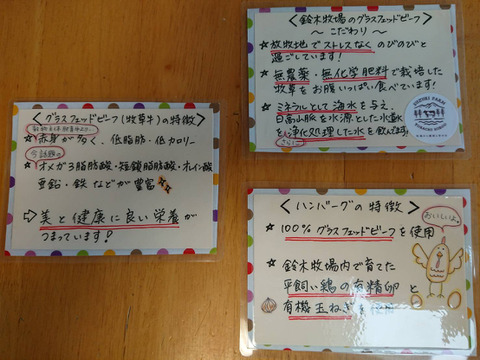 <グラスフェッドビーフ(牧草牛)の特徴>
☆赤身が多く、低脂肪・低カロリー
今話題の
☆オメガ3脂肪酸・短鎖脂肪酸・オレイン酸
亜鉛・鉄などが豊富
⇨美と健康に良い栄養が
つまっています!
<鈴木牧場のグラスフェッドビーフ>
〜こだわり〜
☆放牧地でストレスなくのびのびと
過ごしています!
☆無農薬・無化学肥料で栽培した
牧草をお腹いっぱい食べています!
☆ミネラルとして海水を与え、
日高山脈を水源とした水道水
を浄化処理した水を飲んでます!
さらに
SUZUKI FARM
<ハンバーグの特徴>
おいしいよ。
☆100%グラスフェッドビーフを使用
☆鈴木牧場内で育てた
平飼い鶏の有精卵と
有機玉ねぎを使用